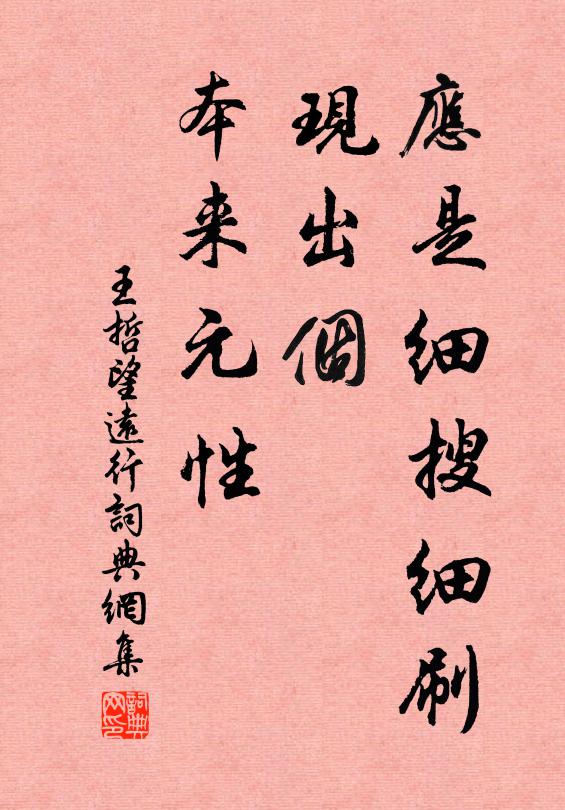 應是細搜細刷
現出個
本来元性
王哲望遠行詞典網集
詞典
网印